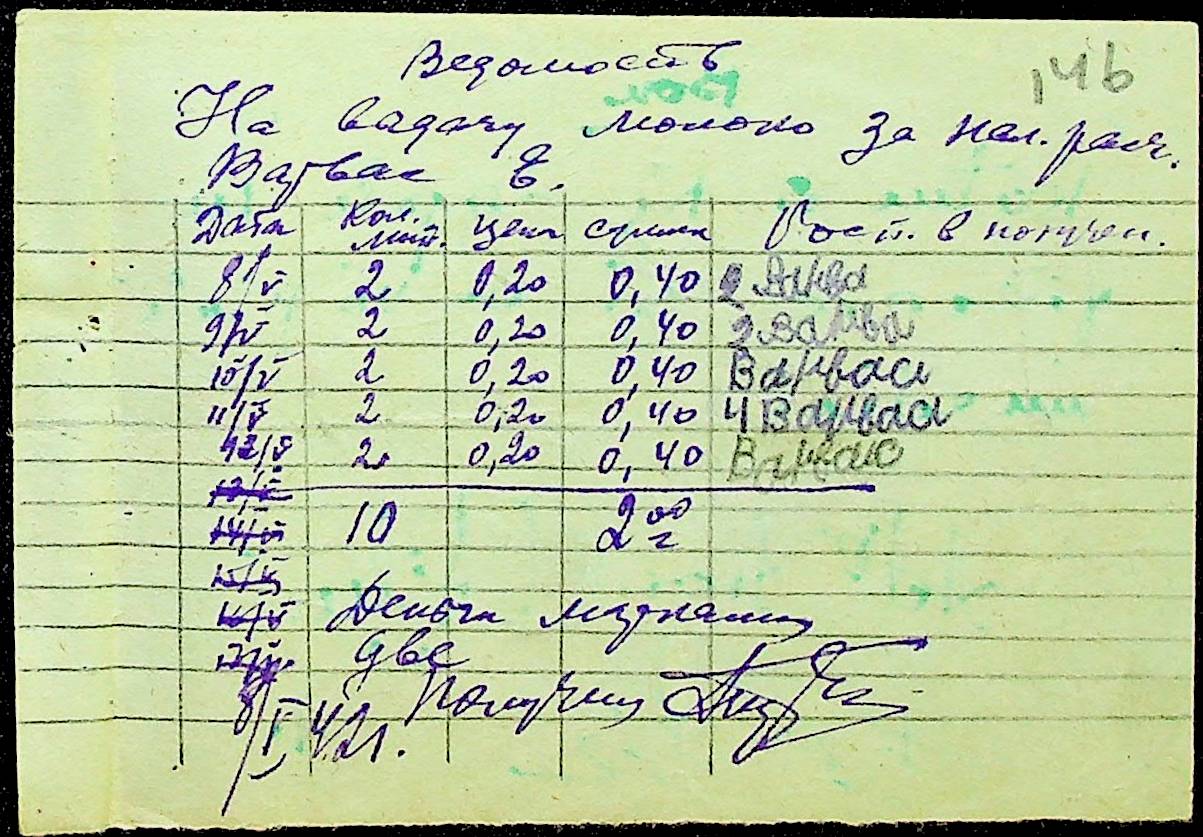 146
Ведомость
На вадачу молоко за нал. расч.
Варвас Е.
Дата Кол. лит. цена сумма Рост. в получен.
8/V 2 0,20 0,40 Варва
9/V 2 0,20 0,40 Варва
10/V 2 0,20 0,40 Варвас
11/V 2 0,20 0,40 Варвас
12/V 2 0,20 0,40 Варвас
13/V
14/V 10 2 00
15/V
16/V Деньги марками
17/V две
8/V 42г. Получил